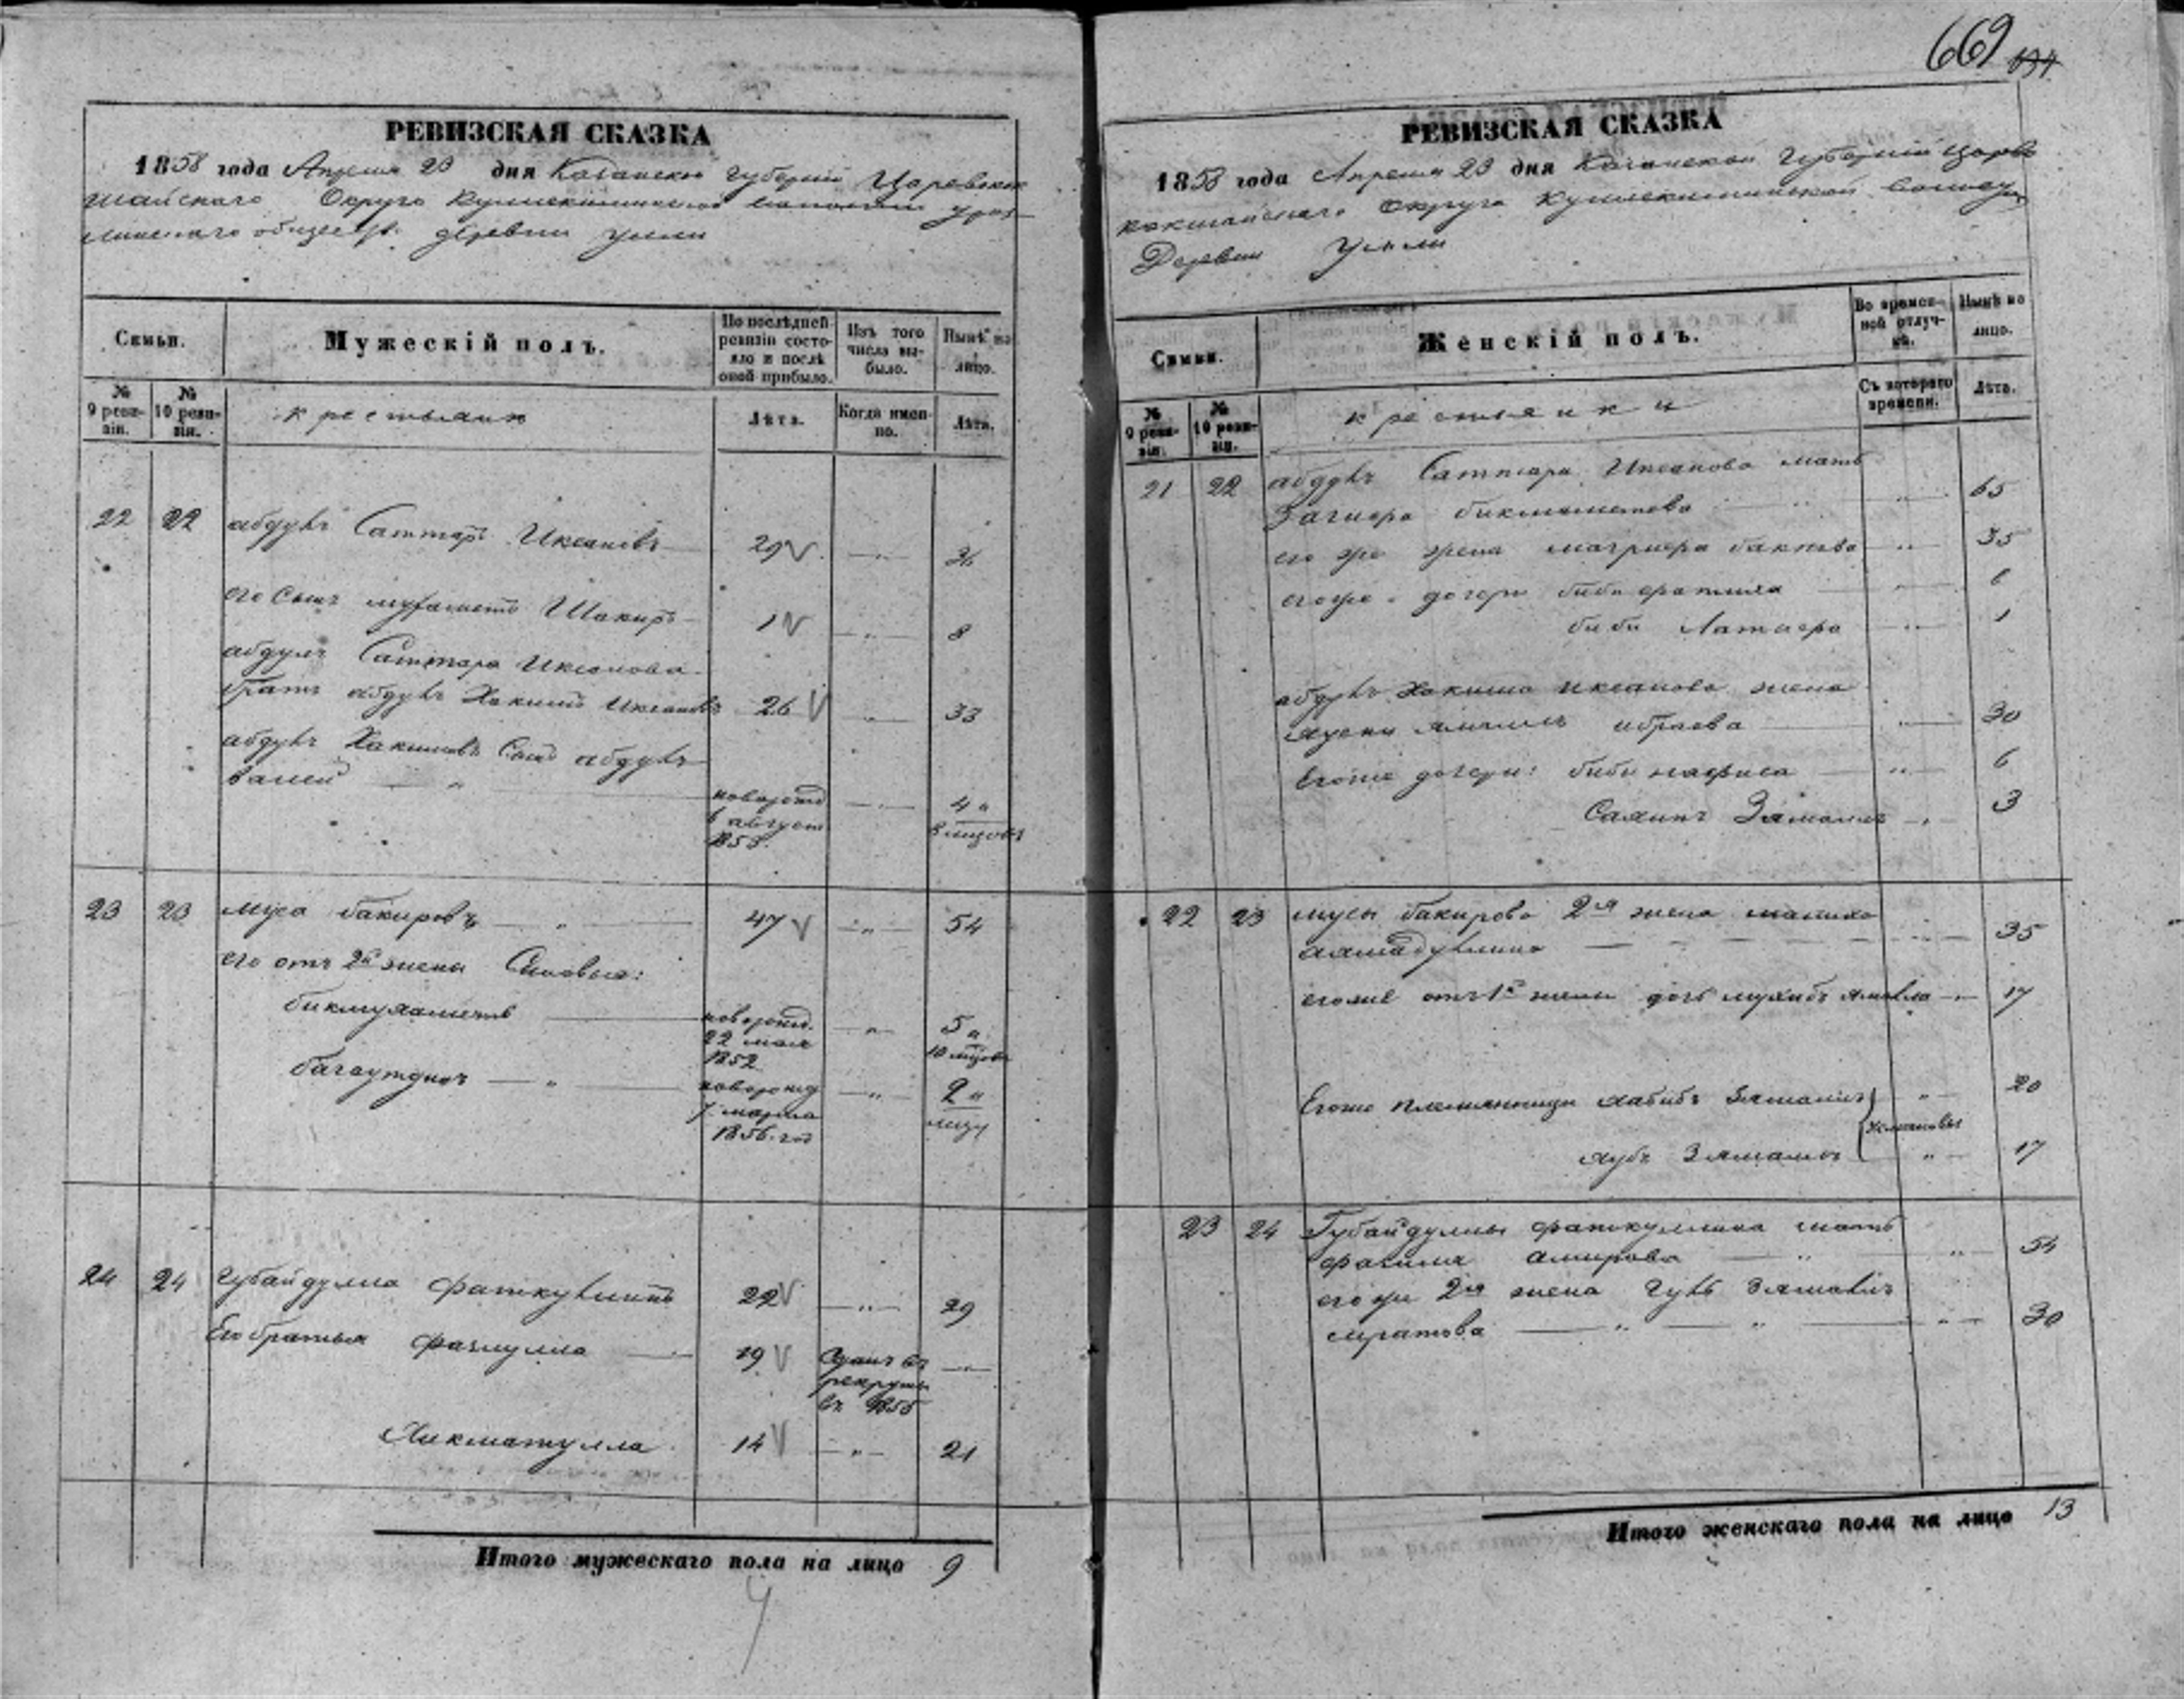 РЕВИЗСКАЯ СКАЗКА
1858 года Апреля 23 дня Казанской Губерніи Царевокок
шайскаго Округа
общества деревни Уили
Семьи.
Мужескій полъ.
По послѣдней ревизіи состояло и послѣ оной прибыло.
Изъ того числа выбыло.
Нынѣ на лицо.
№ 9 ревизіи.
№ 10 ревизіи.
крестьяне
Лѣта.
Когда именно.
Лѣта.
22 22 абдулъ Саттаръ Иксановъ 29 — " —
его сынъ мухаметъ Шакиръ 1 — " — 8
абдулъ Саттара Иксанова
братъ абдулъ Хакимъ Иксановъ 26 — " — 33
абдулъ Хакимовъ Сынъ абдулъ
валей — " — новорожд — " — 4 и
августа 8 мѣсяцовъ
1853.
23 23 муса бакировъ — " — 47 — " — 54
его отъ 2й жены Сыновья:
бикмухаметъ — новорожд. — " — 5 и
22 мая 10 мѣсяцовъ
1852
багаутдинъ — " — новорожд — " — 2 и
7 марта мѣсяцъ
1856 год
24 24 Губайдулла фаткуллинъ 22 — " — 29
Его братья фазлулла — 19 Сданъ въ — " —
рекруты
въ 1855
Хикматулла 14 — " — 21
Итого мужескаго пола на лицо 9
4
669
РЕВИЗСКАЯ СКАЗКА
1858 года Апреля 23 дня Казанской Губерніи Царево
кокшайскаго Округа волости
Деревни Уили
Семьи.
Женскій полъ.
Во временной отлучкѣ.
Нынѣ на лицо.
№ 9 ревизіи.
№ 10 ревизіи.
крестьянки
Съ котораго времени.
Лѣта.
21 22 абдулъ Саттара Иксанова мать
Загиера бикмаметева — " — 65
его же жена магриера бакиева — " — 35
егоже дочери биби фатима — " —
биби Латиера — " — 1
абдулъ Хакима иксанова жена
ибраева — " — 30
Егоже дочери: биби нафиса — " — 6
Зямалъ — " — 3
22 23 мусы бакирова 2я жена малика
— " — 35
егоже отъ 1й жены дочь — " — 17
Егоже племянницы хабибъ Зямалъ " — 20
Зямалъ " — 17
23 24 Губайдуллы фаткуллина мать
фагима амирова — " — " — 54
его же 2я жена Гуль Зямалъ
муратова — " — " — " — 30
Итого женскаго пола на лицо 13